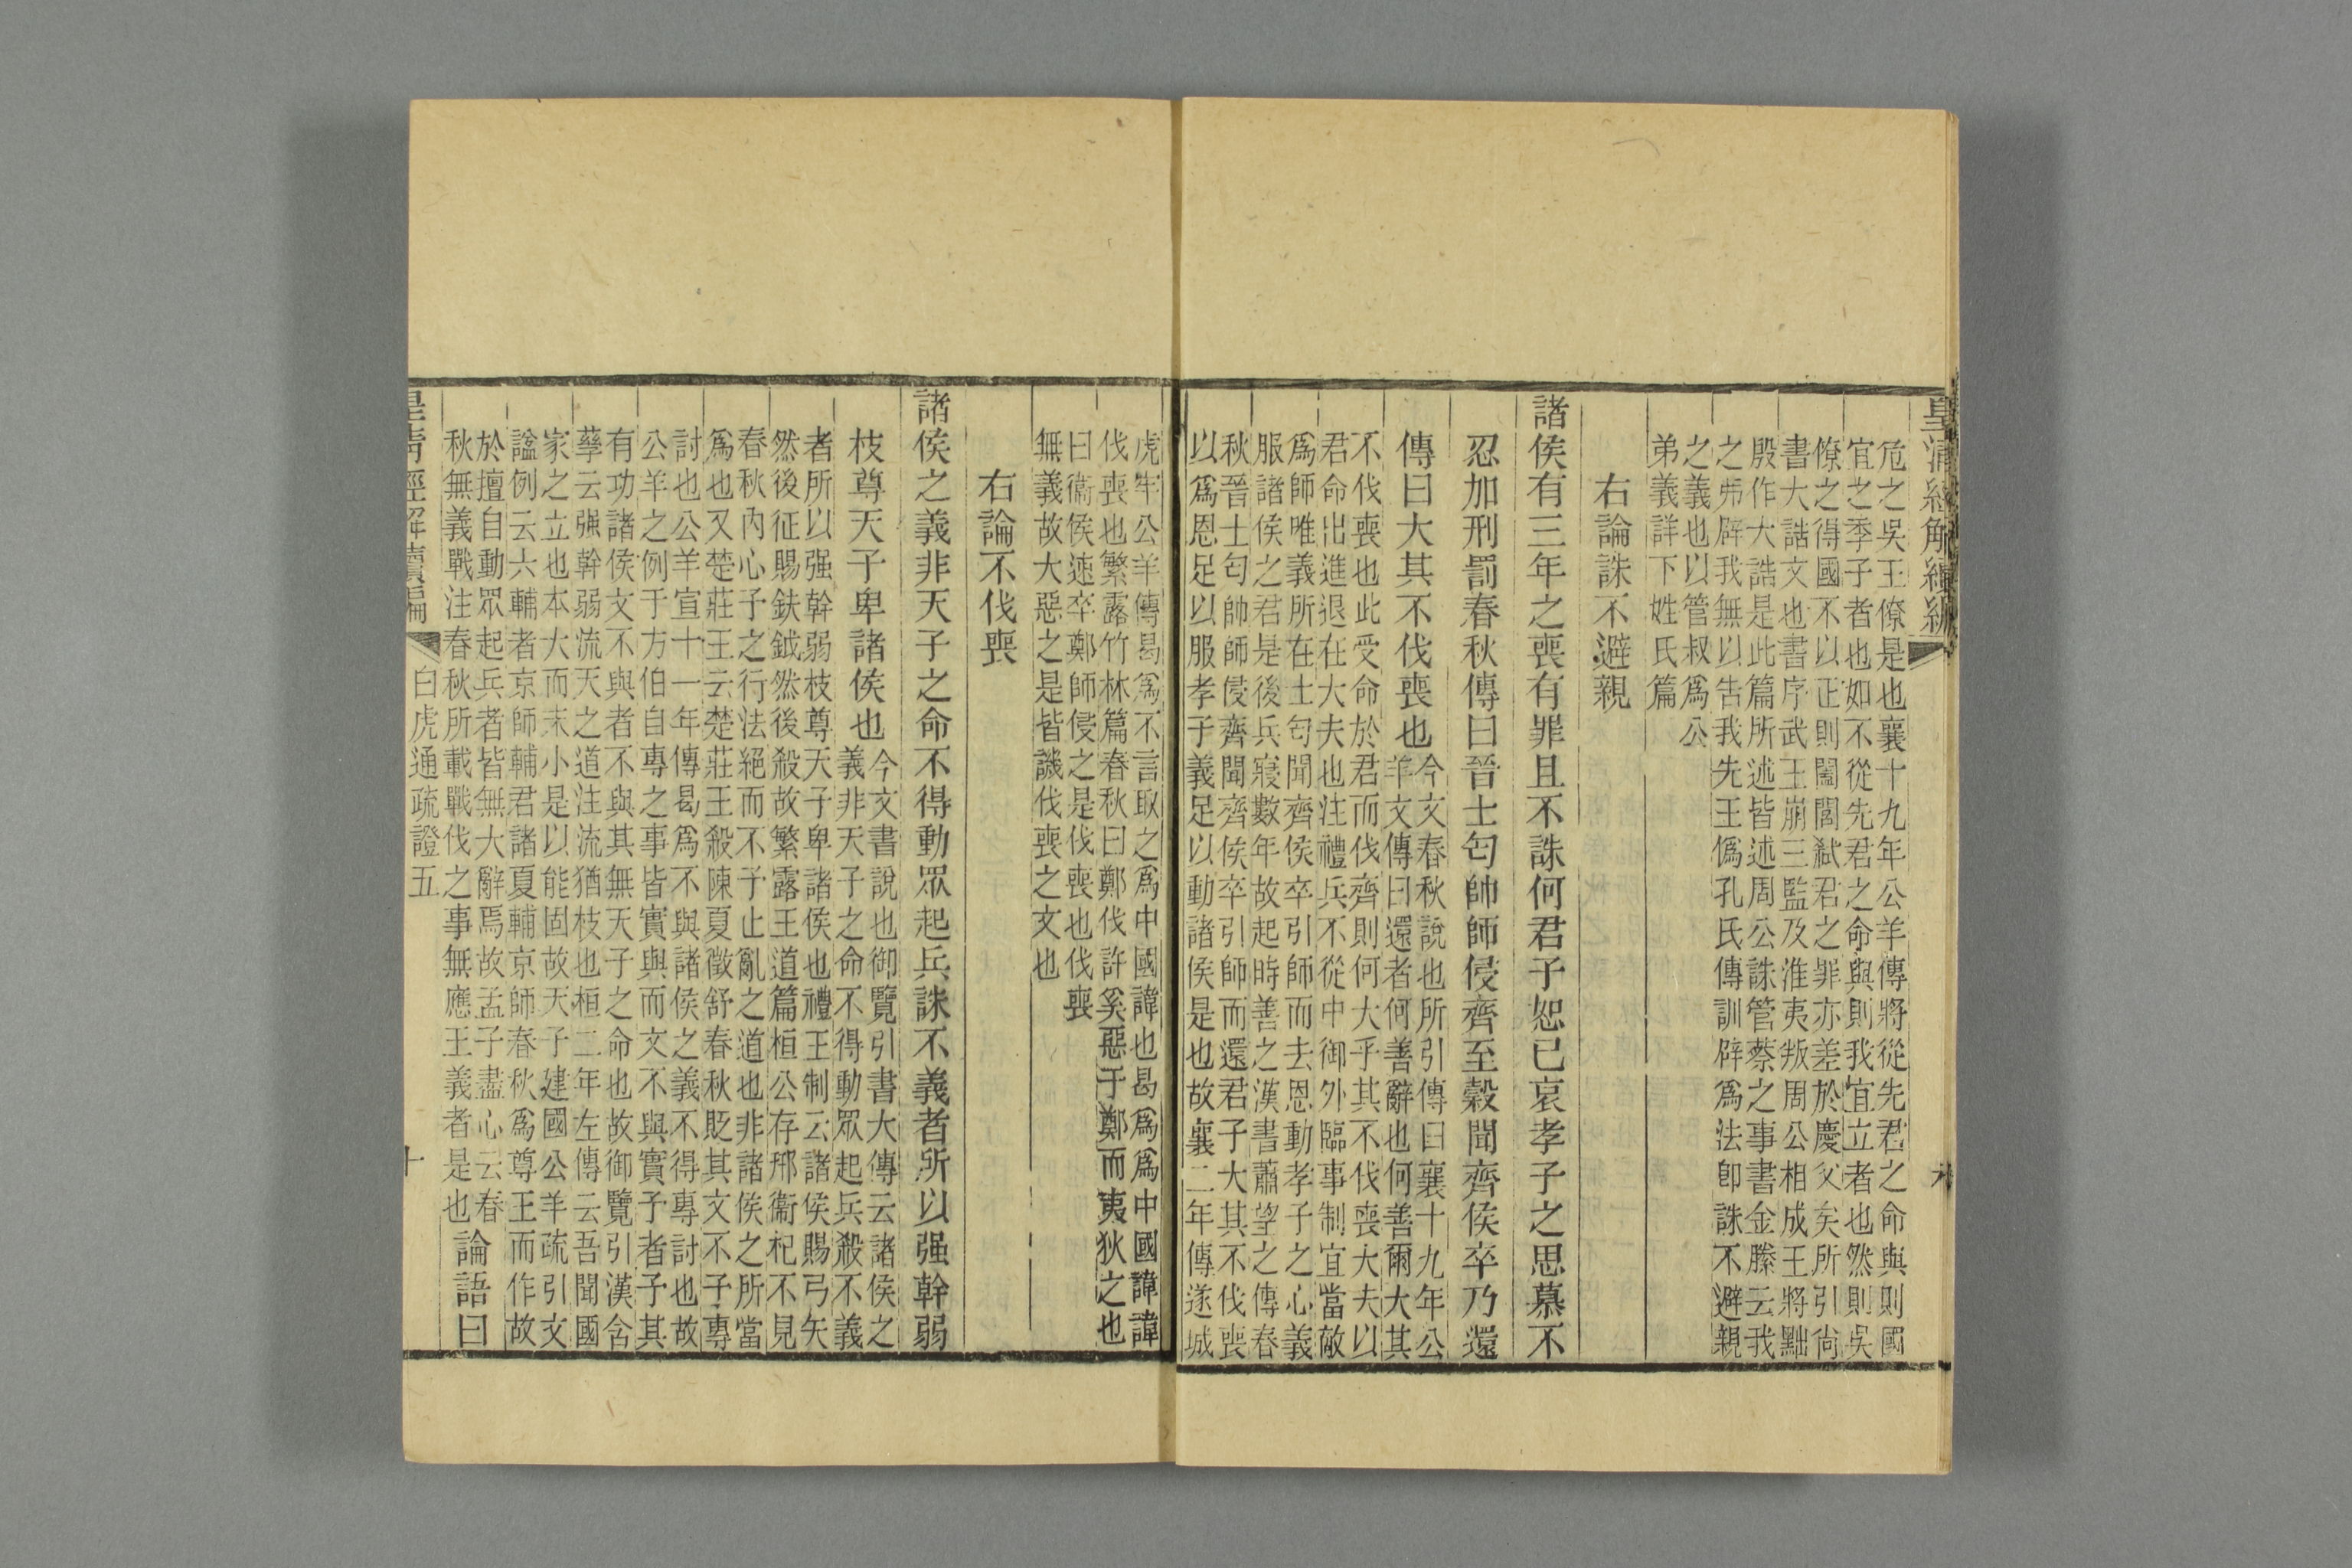 皇清經解續編
危之吳王僚是也襄十九年公羊傳將從先君之命與則國
宜之季子者也如不從先君之命與則我宜立者也然則吳
僚之得國不以正則闔閭弒君之罪亦差於慶父矣所引尚
書大誥文也書序武王崩三監及淮夷叛周公相成王將黜
殷作大誥是此篇所述皆述周公誅管蔡之事書金縢云我
之弗辟我無以告我先王僞孔氏傳訓辟爲法卽誅不避親
之義也以管叔爲公
弟義詳下姓氏篇
右論誅不避親
諸侯有三年之喪有罪且不誅何君子恕己哀孝子之思慕不
忍加刑罰春秋傳曰晉士匄帥師侵齊至穀聞齊侯卒乃還
傳曰大其不伐喪也
今文春秋說也所引傳曰襄十九年公
羊文傳曰還者何善辭也何善爾大其
不伐喪也此受命於君而伐齊則何大乎其不伐喪大夫以
君命出進退在大夫也注禮兵不從中御外臨事制宜當敵
爲師唯義所在士匄聞齊侯卒引師而去恩動孝子之心義
服諸侯之君是後兵寢數年故起時善之漢書蕭望之傳春
秋晉士匄帥師侵齊聞齊侯卒引師而還君子大其不伐喪
以爲恩足以服孝子義足以動諸侯是也故襄二年傳遂城
虎牢公羊傳曷爲不言取之爲中國諱也曷爲爲中國諱諱
伐喪也繁露竹林篇春秋曰鄭伐許奚惡于鄭而夷狄之也
曰衞侯速卒鄭師侵之是伐喪也伐喪
無義故大惡之是皆譏伐喪之文也
右論不伐喪
諸侯之義非天子之命不得動眾起兵誅不義者所以强幹弱
枝尊天子卑諸侯也
今文書說也御覽引書大傳云諸侯之
義非天子之命不得動眾起兵殺不義
者所以强幹弱枝尊天子卑諸侯也禮王制云諸侯賜弓矢
然後征賜鈇鉞然後殺故繁露王道篇桓公存邢衞杞不見
春秋內心予之行法絕而不予止亂之道也非諸侯之所當
爲也又楚莊王云楚莊王殺陳夏徵舒春秋貶其文不予專
討也公羊宣十一年傳曷爲不與諸侯之義不得專討也故
公羊之例于方伯自專之事皆實與而文不與實予者予其
有功諸侯文不與者不與其無天子之命也故御覽引漢含
孳云强幹弱流天之道注流猶枝也桓二年左傳云吾聞國
家之立也本大而末小是以能固故天子建國公羊疏引文
諡例云六輔者京師輔君諸夏輔京師春秋爲尊王而作故
於擅自動眾起兵者皆無大辭焉故孟子盡心云春
秋無義戰注春秋所載戰伐之事無應王義者是也
論語曰
皇清經解續編
白虎通疏證五
十